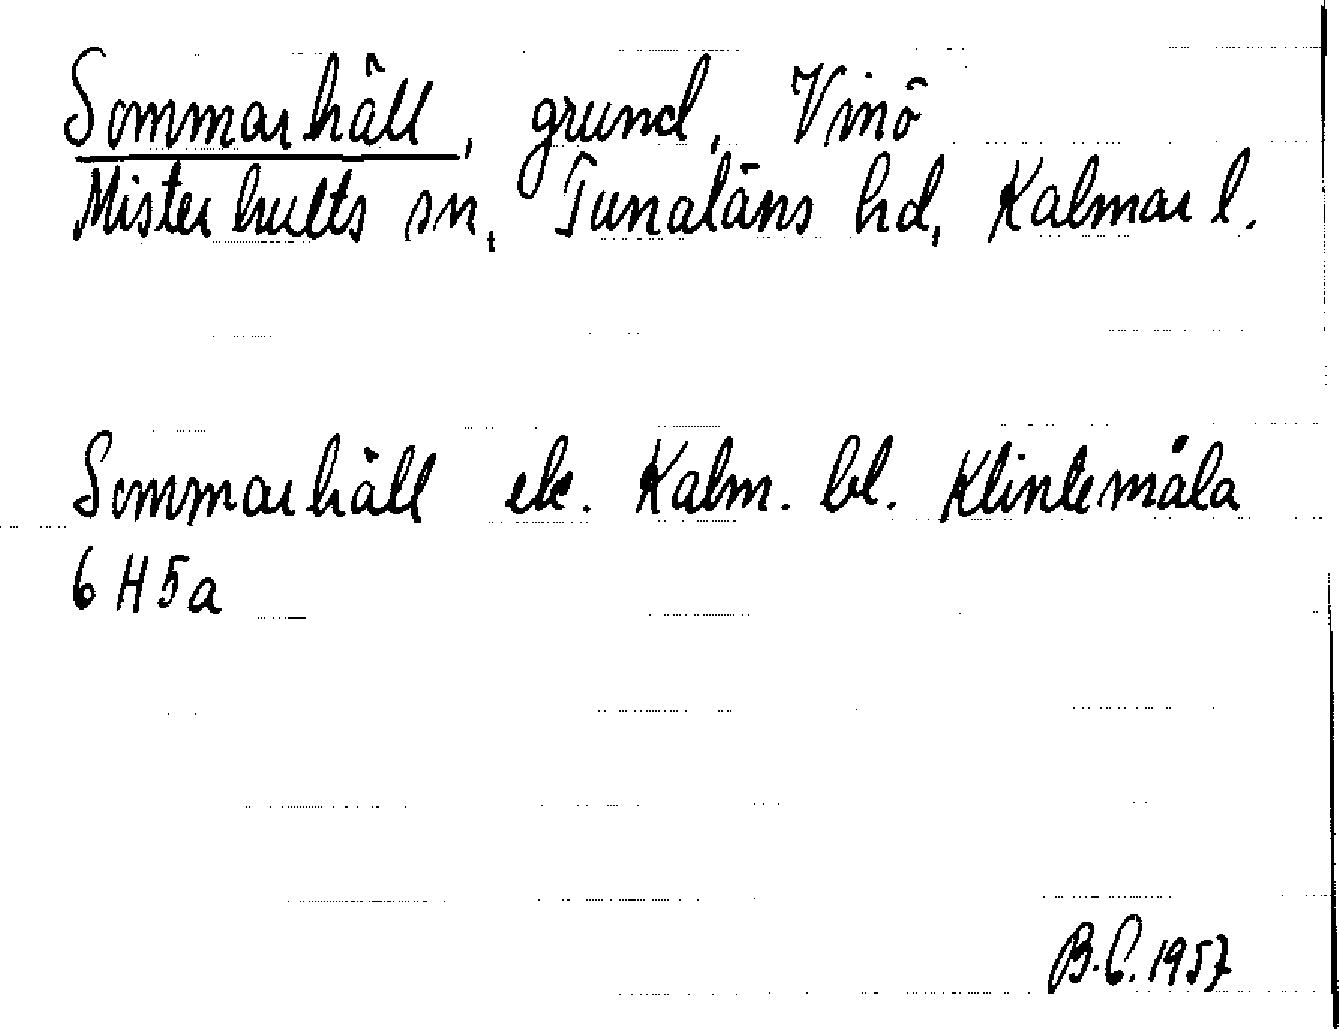 Sommarhäll, grund, Vinö
Misterhults sn, Tunaläns hd, Kalmar l.
Sommarhäll ek. Kalm. bl. Klintemåla
6H5a
B.C. 1957